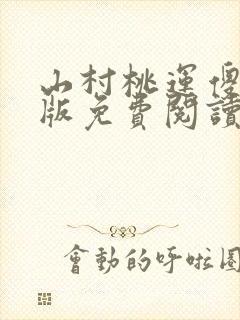 山村桃運傻
版免費閱讀
會動的呼啦圈